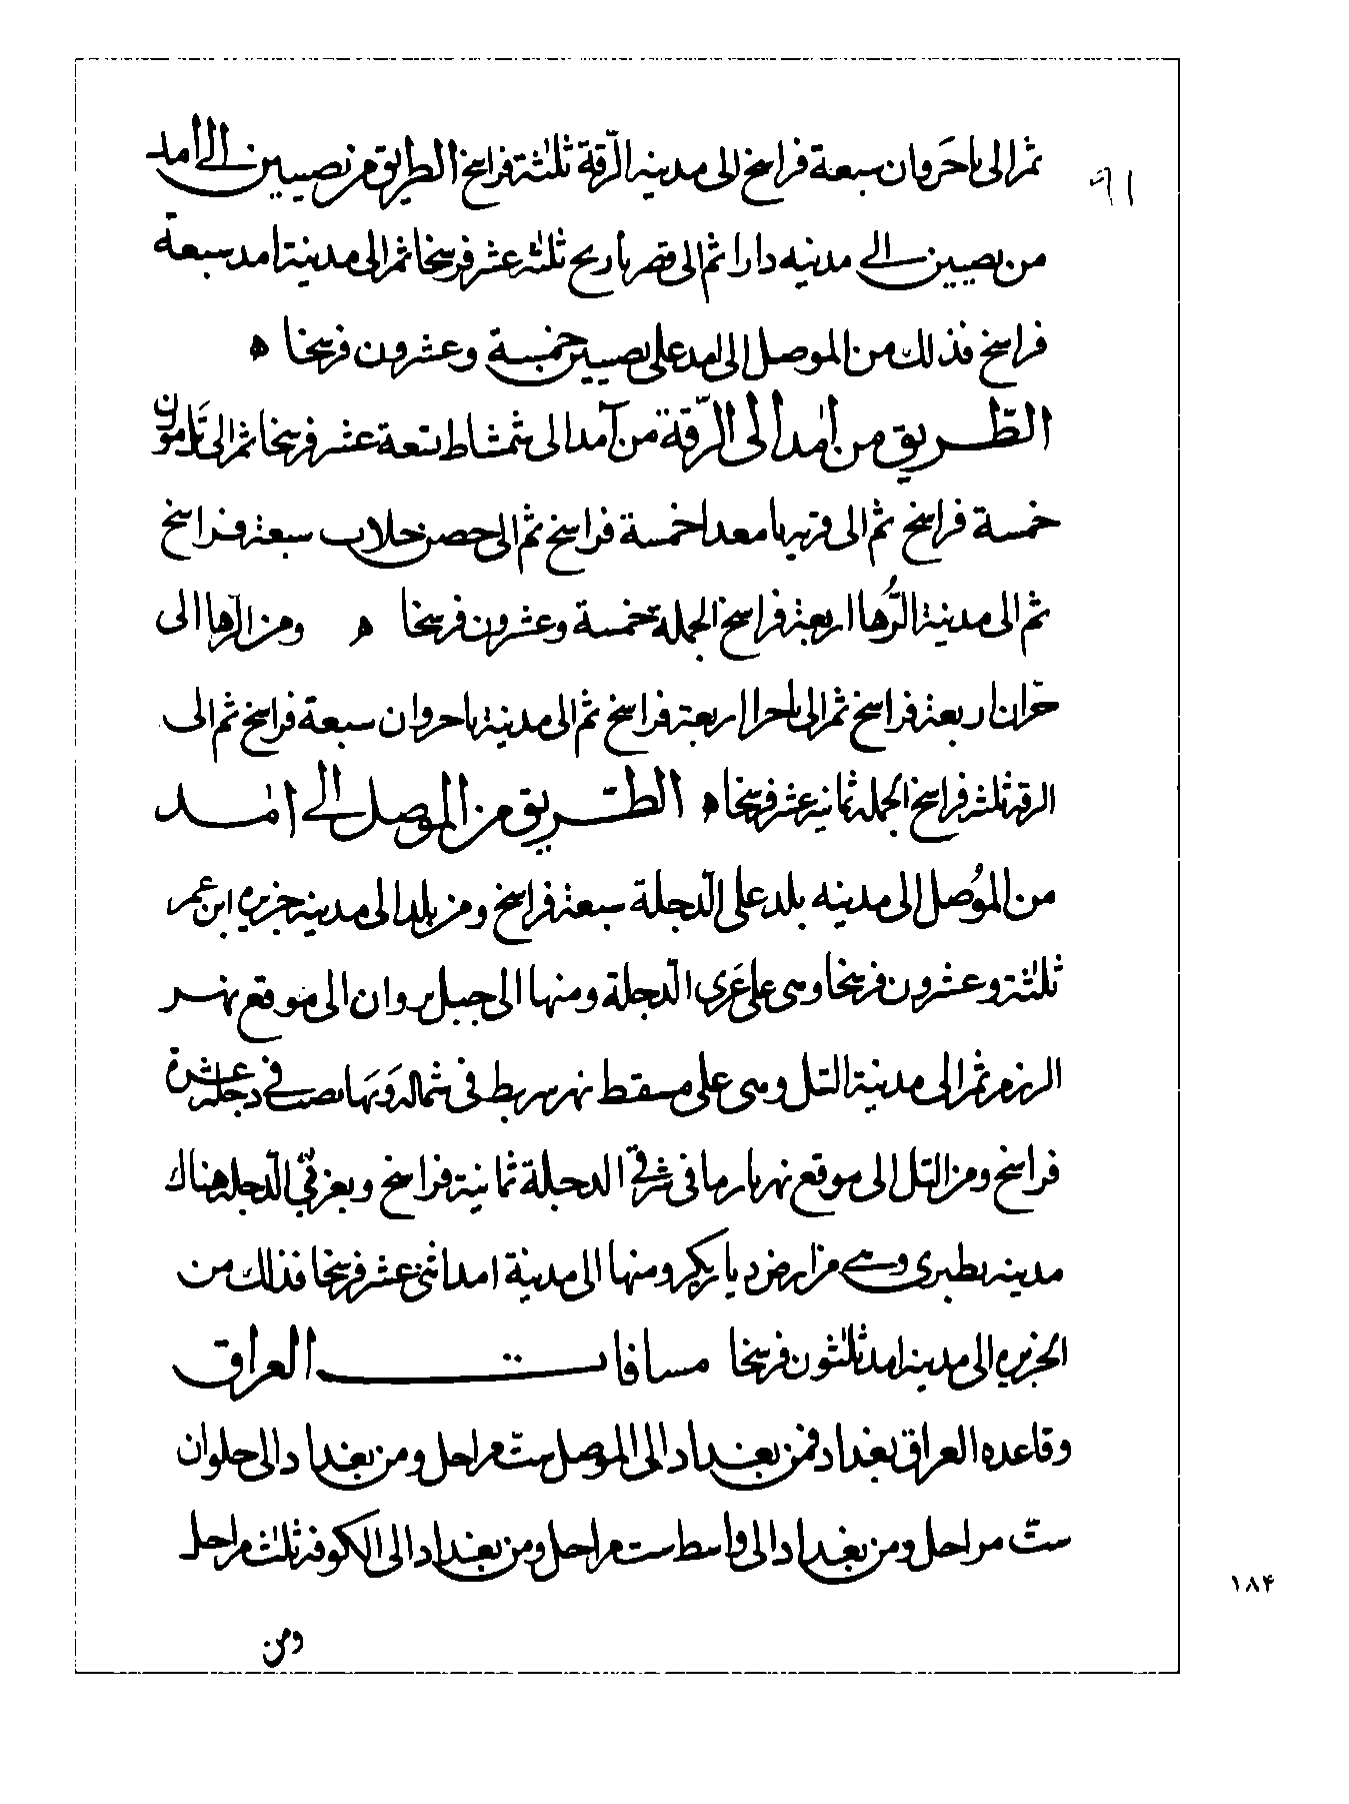 ثم الى باجَروان سبعة فراسخ الى مدينه الرّقة ثلثة فراسخ الطريق من نصيبين الى امد
٩١
من نصيبين الى مدينه دارا ثم الى قصر بازيح ثلثه عشر فرسخا ثم الى مدينة امد سبعة
فراسخ فذلك من الموصل الى امد على نصيبين خمسة وعشرون فرسخا ه
الطّريق من امد الى الرّقة من آمد الى شمشاط تسعة عشر فرسخا ثم الى تل موزن
خمسة فراسخ ثم الى قرية بامعدا خمسة فراسخ ثم الى حصن جلاب سبعة فراسخ
ثم الى مدينة الرُّها اربعة فراسخ الجملة خمسة وعشرون فرسخا ه ومن الرها الى
حرّان اربعة فراسخ ثم الى باجرا اربعة فراسخ ثم الى مدينة باجروان سبعة فراسخ ثم الى
الرقة ثلثة فراسخ الجملة ثمانية عشر فرسخا ه الطّريق من الموصل الى امد
من الموُصل الى مدينه بلد على الدّجلة سبعة فراسخ ومن بلد الى مدينه جزيره ابن عمر
ثلثة وعشرون فرسخا وهى على غَربى الدّجلة ومنها الى جبل بروان الى موقع نهر
الرزم ثم الى مدينة التل وهى على مسقط نهر سربط فى شماله وَبَها يصب فى دجلة عشرة
فراسخ ومن التل الى موقع نهر بارما فى شرقى الدجلة ثمانية فراسخ وبغربى الدّجلة هناك
مدينه بطبرى وهى من ارض ديار بكر ومنها الى مدينة امد اثنى عشر فرسخا فذلك من
الجزيره الى مدينه امد ثلثون فرسخا مسافات العراق
وقاعده العراق بغداد فمن بغداد الى الموصل ستّ مراحل ومن بغداد الى حلوان
ستّ مراحل ومن بغداد الى واسط ست مراحل ومن بغداد الى الكوفة ثلث مراحل
ومن
١٨۴